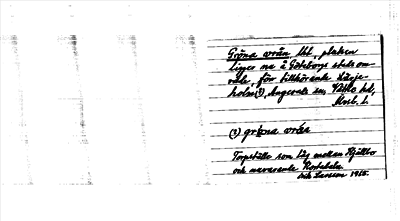 Gröna vrån lht, platsen
ligger nu å Göteborgs stads om-
råde, för tillhörande
holm(?), Angereds sn, Vättle hd,
Älvsb. L.
(?) gröna vrån
Torpställe som låg mellan Hjällbo
och nuvarande
och Larsered 1915.